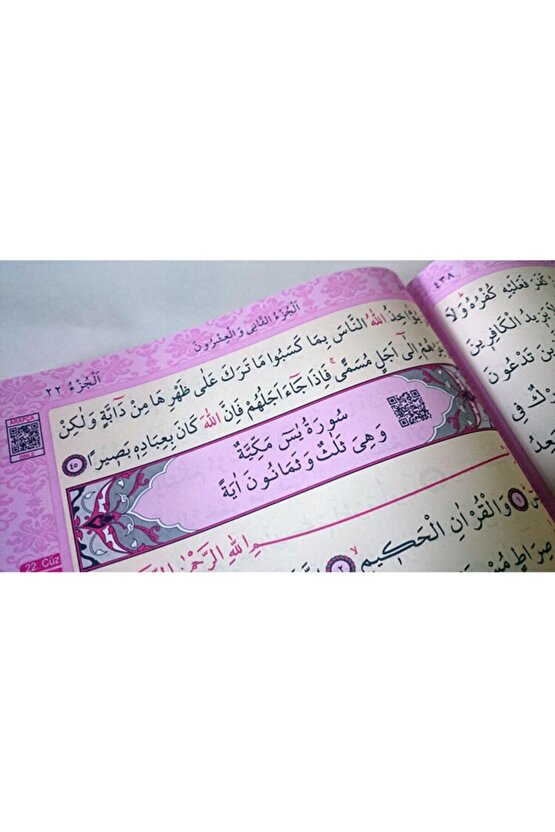 اَلْجُزْءُ الثَّانِي وَالْعِشْرُونَ
اَلْجُزْءُ ٢٢
٤٣٨
ARAPÇA
22. Cüz
اللّٰهُ النَّاسَ بِمَا كَسَبُوا مَا تَرَكَ عَلٰى ظَهْرِهَا مِنْ دَٓابَّةٍ وَلٰكِنْ
اِلٰٓى اَجَلٍ مُسَمًّىۚ فَاِذَا جَٓاءَ اَجَلُهُمْ فَاِنَّ اللّٰهَ كَانَ بِعِبَادِه۪ بَص۪يرًا ٤٥
سُورَةُ يٰسٓ مَكِّيَّةٌ
وَهِيَ ثَلٰثٌ وَثَمَانُونَ اٰيَةً
اللّٰهِ الرَّحْمٰنِ
وَالْقُرْاٰنِ الْحَك۪يمِ ٢
صِرَاطٍ
كَفَرَ فَعَلَيْهِ كُفْرُهُ وَلَا
يَز۪يدُ الْكَافِر۪ينَ
تَدْعُونَ